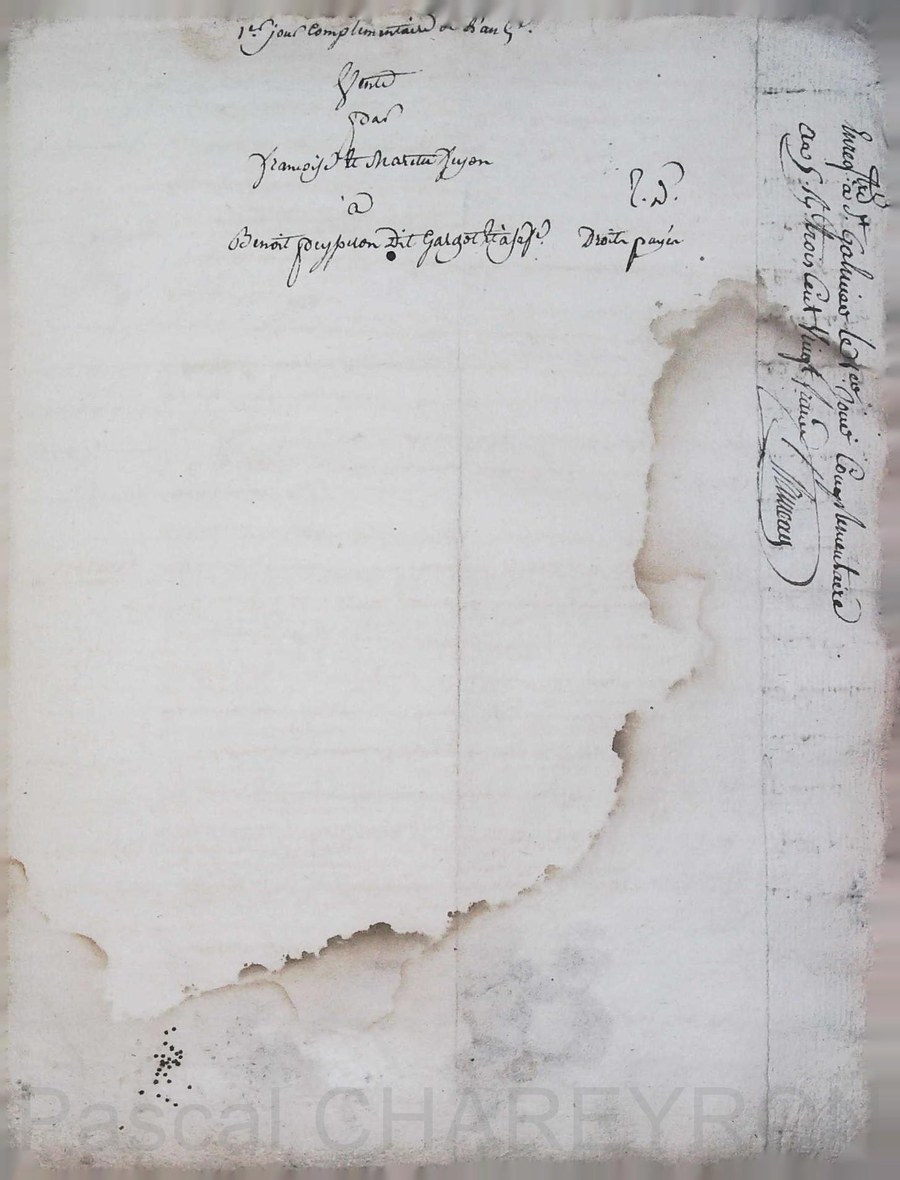 1er jour Complimentaire de L'an 5e.
Vente
par
François et Martin
a
Benoit peyperon Dit Gargot
Droits payés
Enreg. a St Galmier le 1er jour Complementaire
an 5. trois Cent Vingt
Pascal CHAREYRON